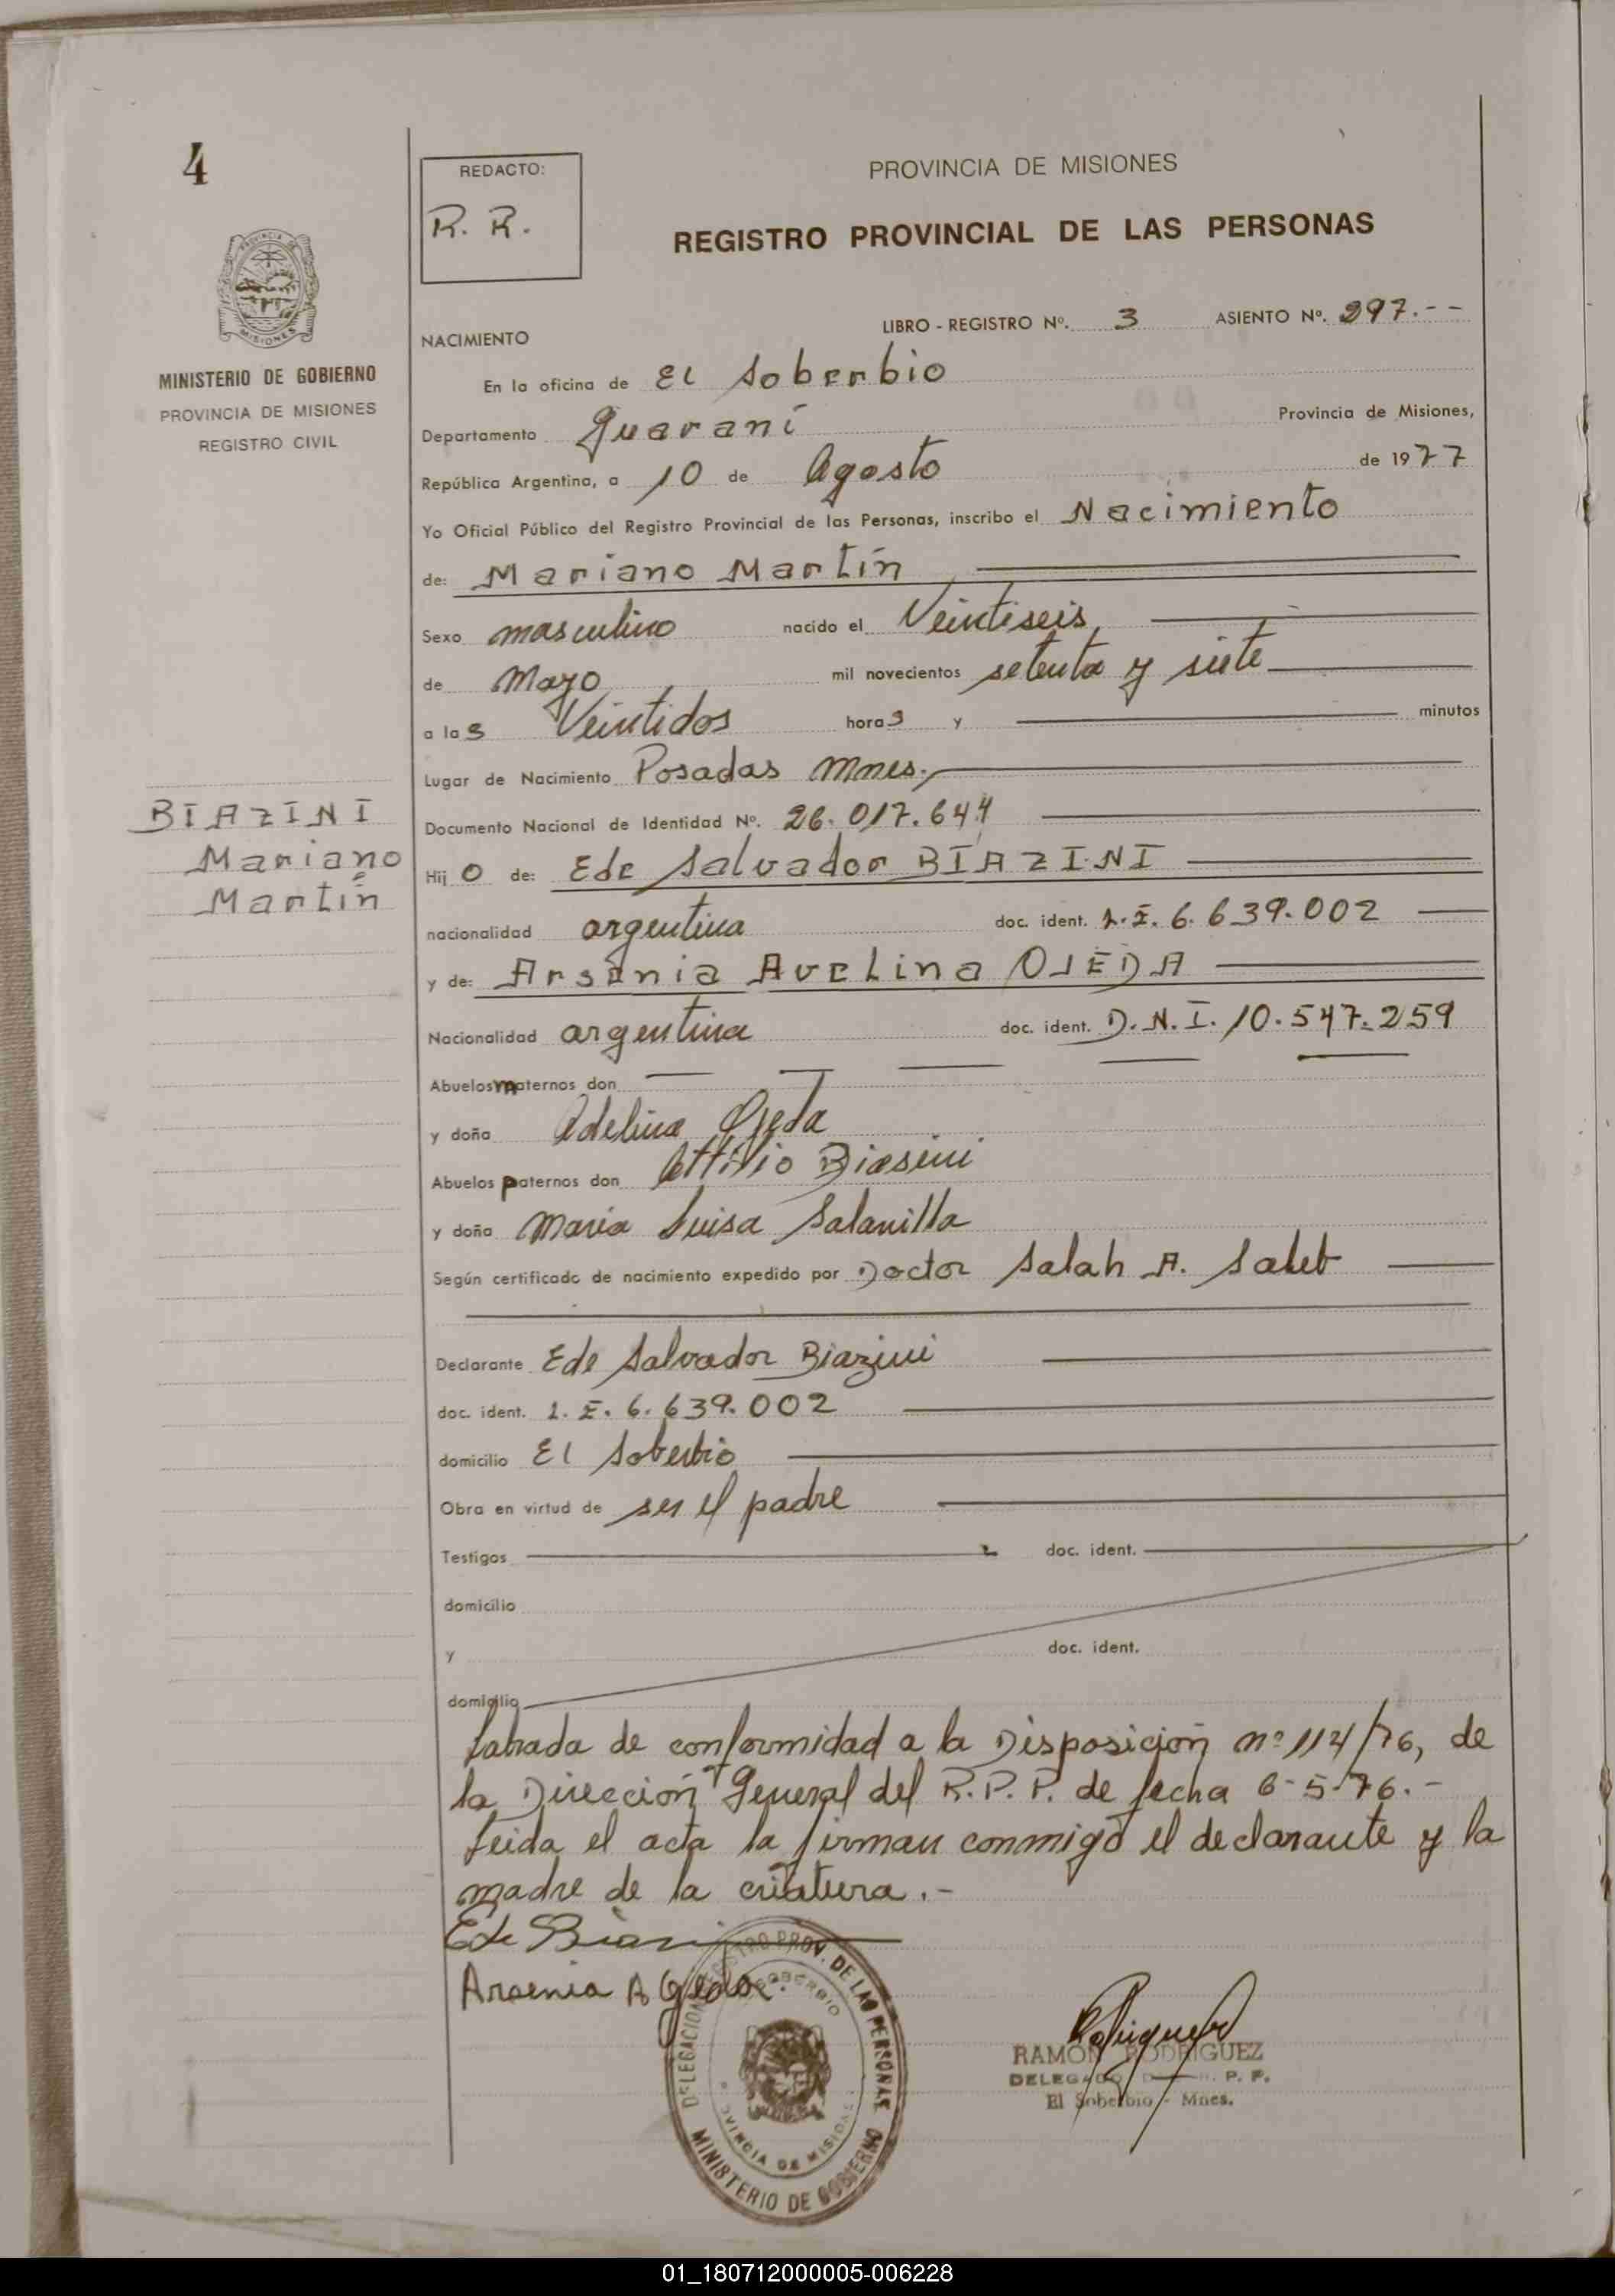 4
REDACTO:
R. R.
PROVINCIA DE MISIONES
REGISTRO PROVINCIAL DE LAS PERSONAS
MINISTERIO DE GOBIERNO
PROVINCIA DE MISIONES
REGISTRO CIVIL
LIBRO - REGISTRO Nº. 3 ASIENTO Nº. 297.--
NACIMIENTO
En la oficina de El Soberbio
Departamento Guaraní Provincia de Misiones,
República Argentina, a 10 de Agosto de 1977
Yo Oficial Público del Registro Provincial de las Personas, inscribo el Nacimiento
de: Mariano Martín
Sexo masculino nacido el Veintiseis
de Mayo mil novecientos setenta y siete
a las Veintidos horas y minutos
Lugar de Nacimiento Posadas Mnes.
BIAZINI
Mariano
Martín
Documento Nacional de Identidad Nº. 26.017.644
Hijo de: Ede Salvador BIAZINI
nacionalidad argentina doc. ident. L.E. 6.639.002
y de: Arsenia Avelina OJEDA
Nacionalidad argentina doc. ident. D.N.I. 10.547.259
Abuelos maternos don
y doña Adelina Ojeda
Abuelos paternos don Attilio Biasini
y doña Maria Luisa Salanilla
Según certificado de nacimiento expedido por Doctor Salah A. Saleb
Declarante Ede Salvador Biazini
doc. ident. L.E. 6.639.002
domicilio El Soberbio
Obra en virtud de ser el padre
Testigos doc. ident.
domicilio
y doc. ident.
domicilio
Labrada de conformidad a la Disposición nº 114/76, de
la Dirección General del R.P.P. de fecha 6-5-76.-
Leida el acta la firman conmigo el declarante y la
madre de la criatura.-
Ede Biazini
Arsenia A Ojeda.
DELEGACION REGISTRO PROV. DE LAS PERSONAS
EL SOBERBIO
PROVINCIA DE MISIONES
MINISTERIO DE GOBIERNO
RAMON RODRIGUEZ
DELEGADO R. P. P.
El Soberbio - Mnes.
01_180712000005-006228